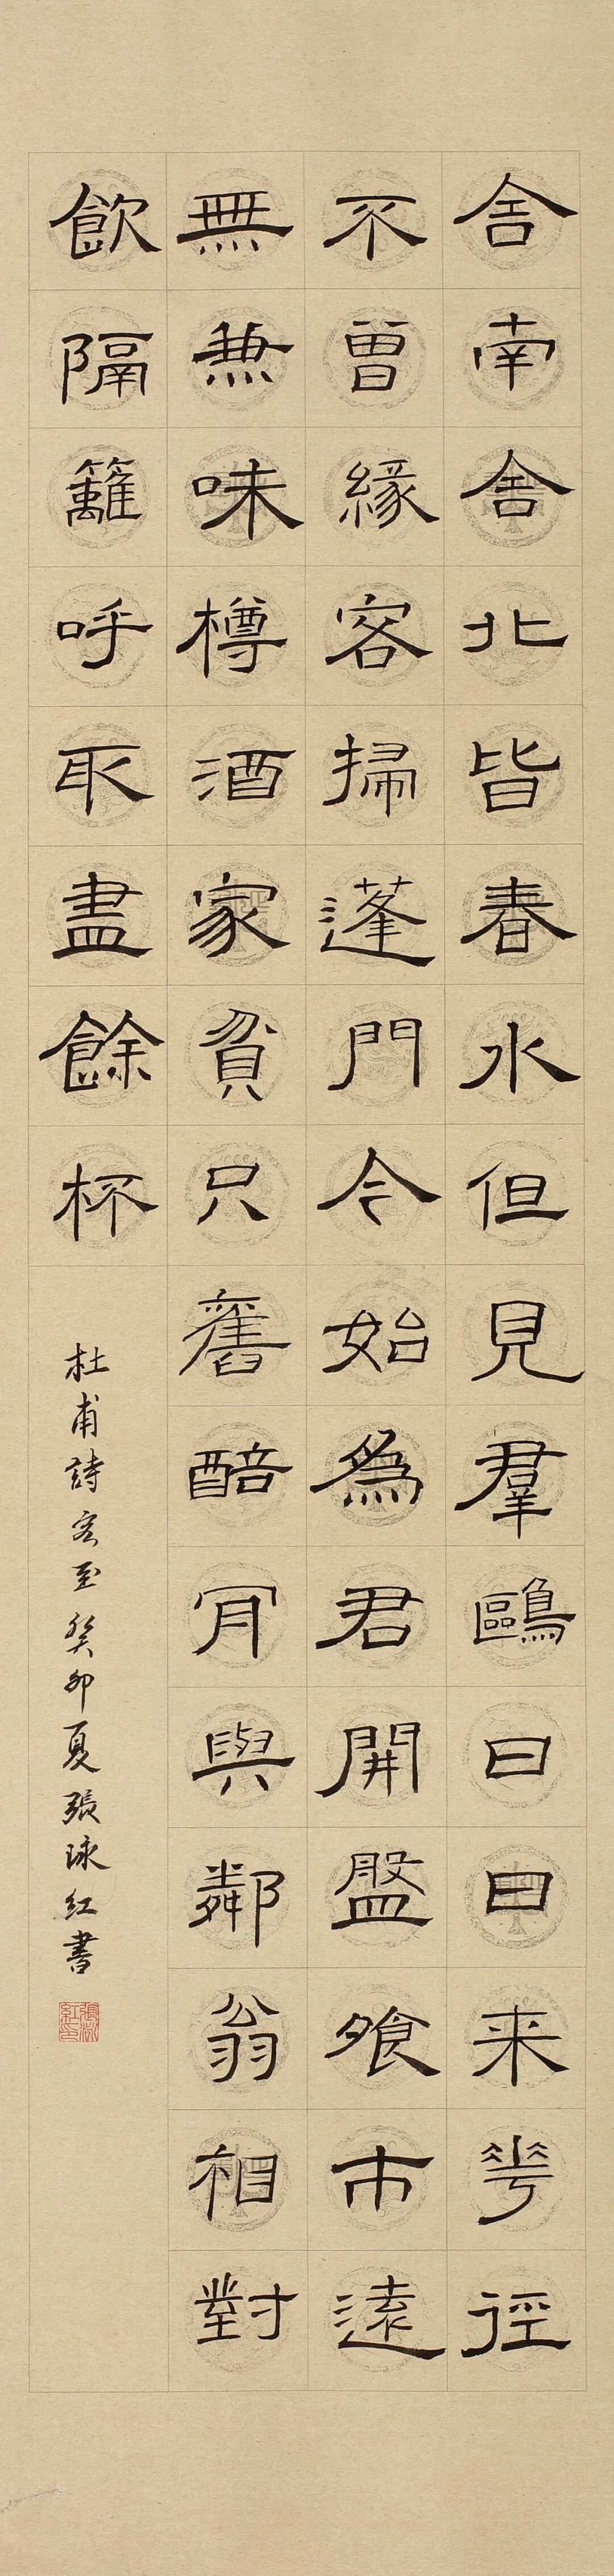 舍南舍北皆春水但見羣鷗日日来花徑
不曾緣客掃蓬門今始為君開盤飧市遠
無兼味樽酒家貧只舊醅肎與鄰翁相對
飲隔籬呼取盡餘杯
杜甫詩客至癸卯夏張詠紅書